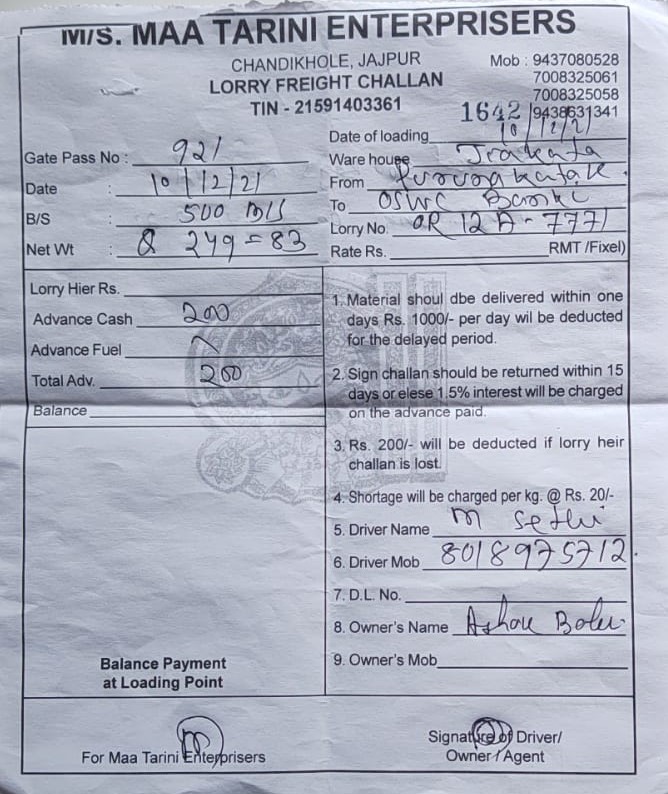 M/S. MAA TARINI ENTERPRISERS
CHANDIKHOLE, JAJPUR
LORRY FREIGHT CHALLAN
TIN - 21591403361
Mob : 9437080528
7008325061
7008325058
9438631341
1642
Date of loading 10/12/21
Gate Pass No : 921
Ware house
Date : 10/12/21
From
B/S : 500 B/S
To OSWC
Net Wt : Q 249=83
Lorry No. OR 12A-7771
Rate Rs. RMT /Fixel)
Lorry Hier Rs.
Advance Cash 200
Advance Fuel
Total Adv. 200
Balance
1. Material shoul dbe delivered within one
days Rs. 1000/- per day wil be deducted
for the delayed period.
2. Sign challan should be returned within 15
days or elese 1.5% interest will be charged
on the advance paid.
3. Rs. 200/- will be deducted if lorry heir
challan is lost.
4. Shortage will be charged per kg. @ Rs. 20/-
5. Driver Name M Sethi
6. Driver Mob 8018975712
7. D.L. No.
8. Owner's Name
9. Owner's Mob
Balance Payment
at Loading Point
For Maa Tarini Enterprisers
Signature of Driver/
Owner / Agent